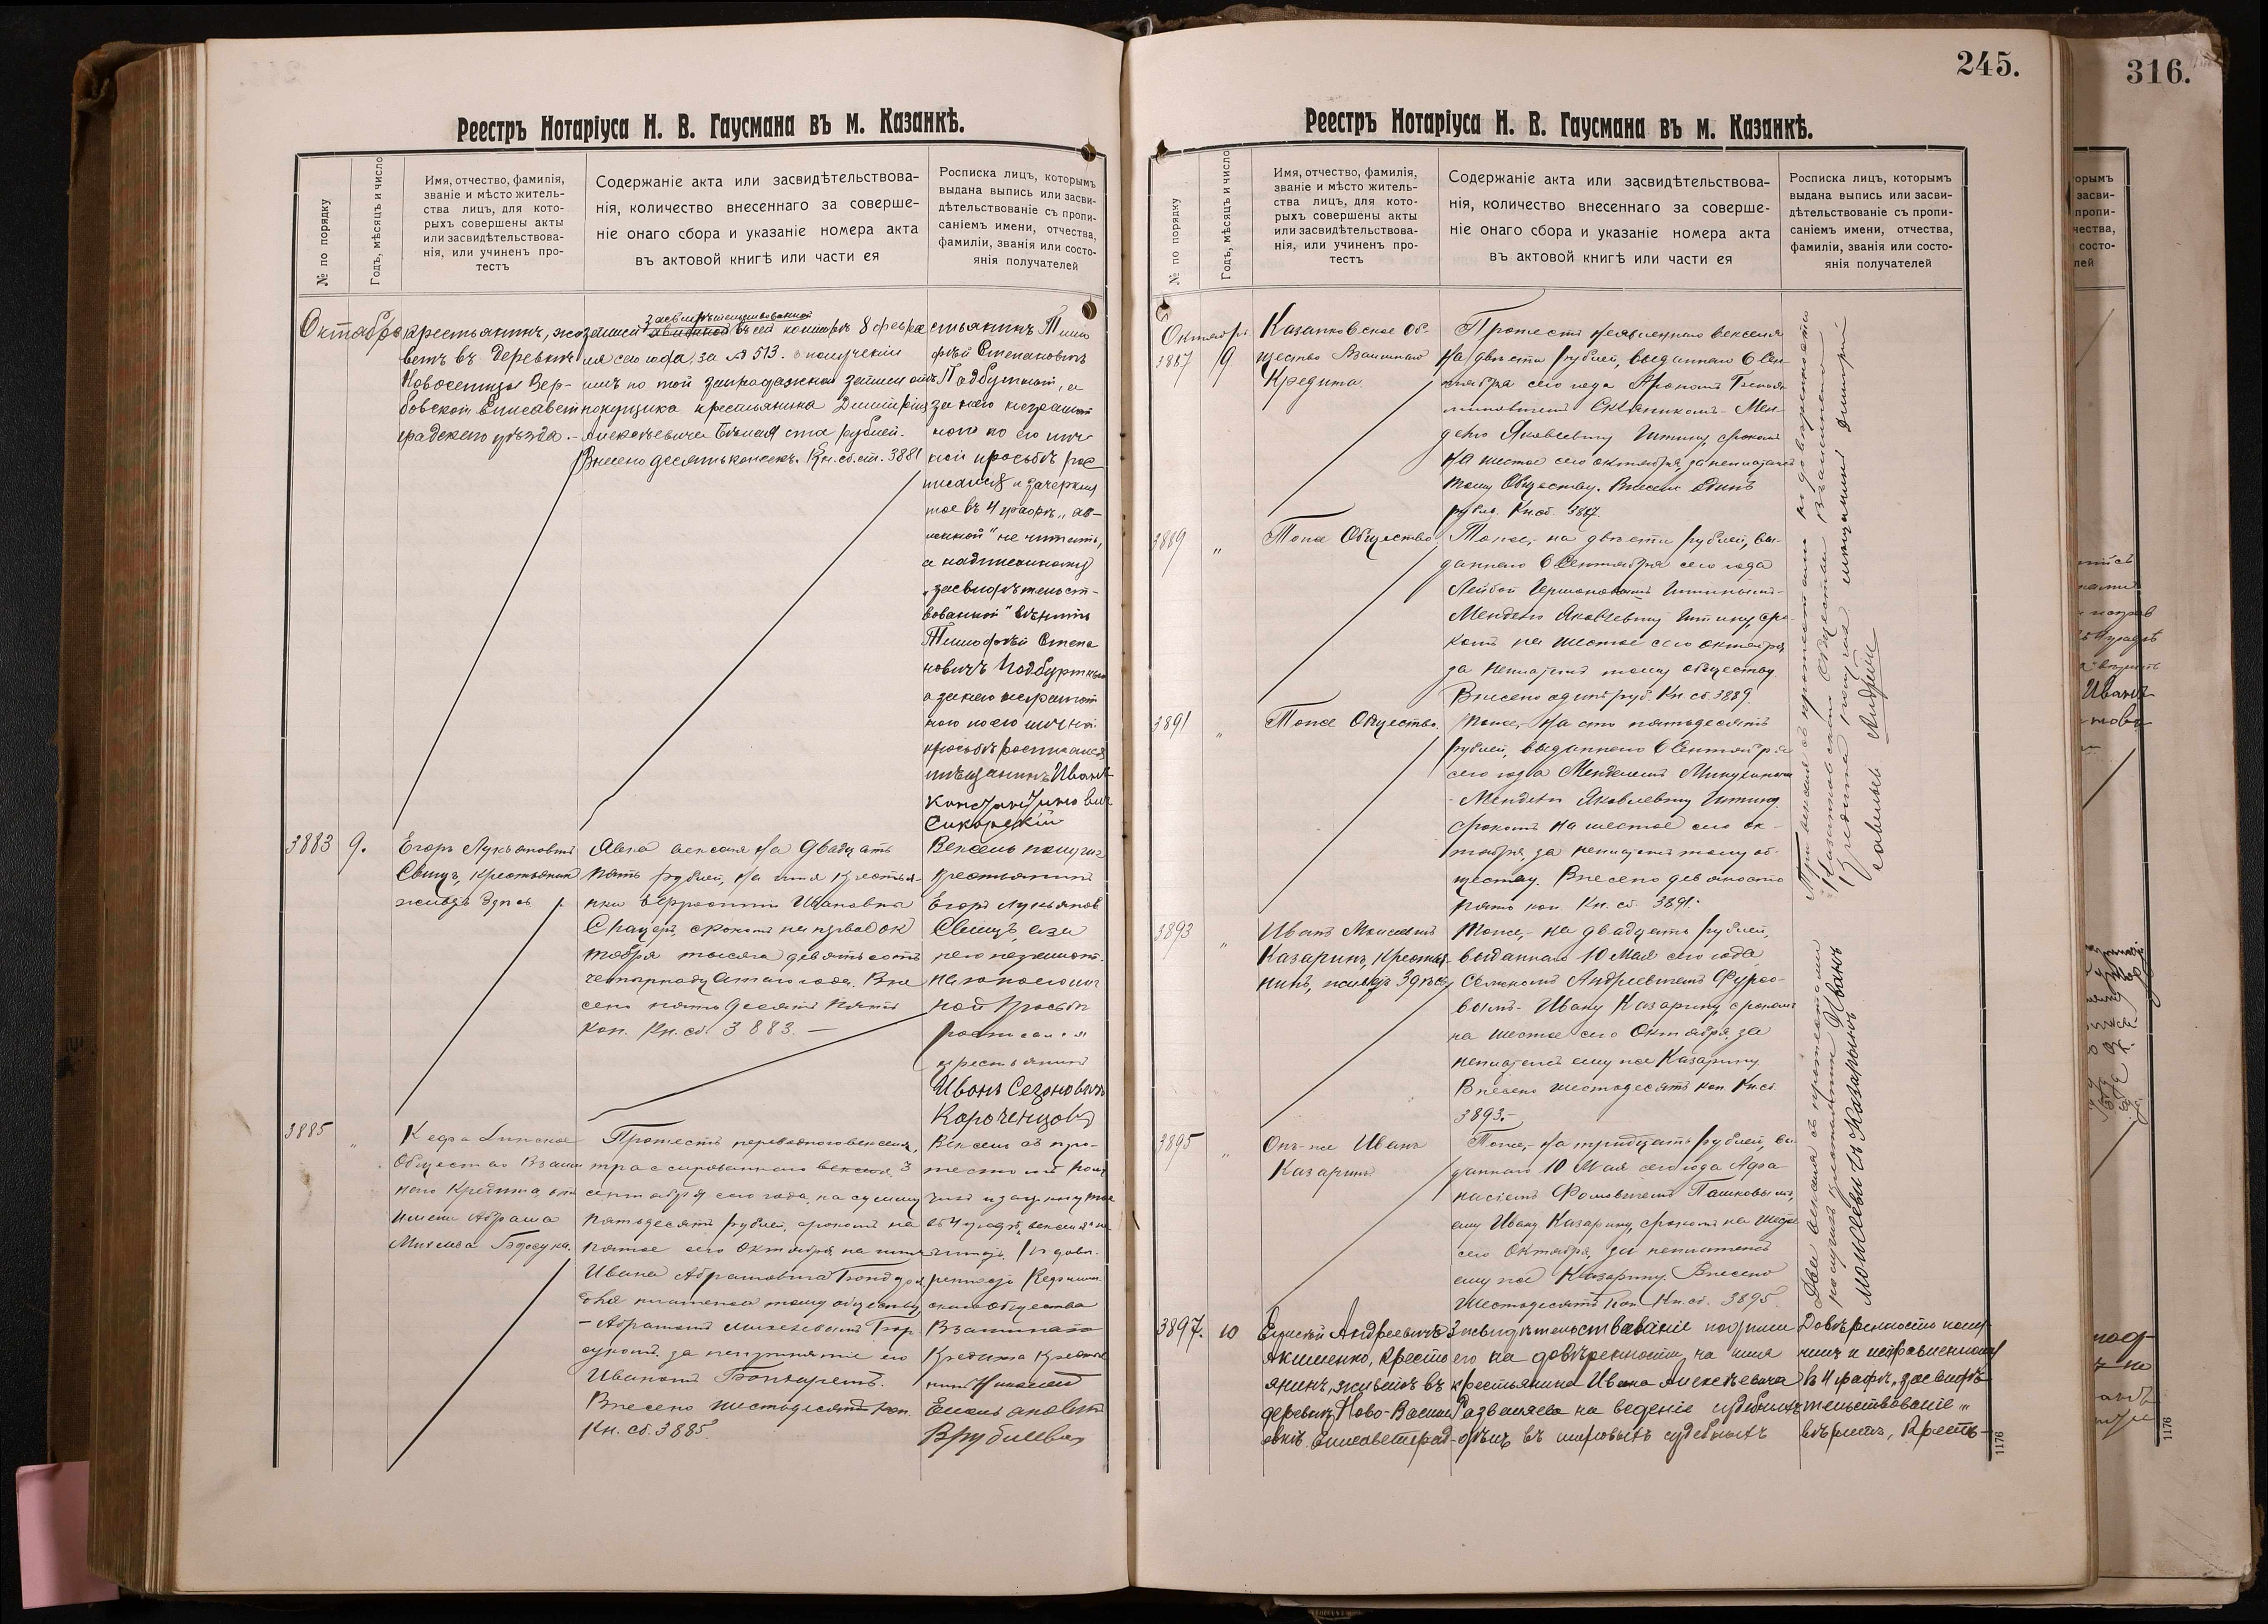 Реестръ Нотаріуса Н. В. Гаусмана въ м. Казанкѣ.
№ по порядку
Годъ, мѣсяцъ и число
Имя, отчество, фамилія,
званіе и мѣсто житель-
ства лицъ, для кото-
рыхъ совершены акты
или засвидѣтельствова-
нія, или учиненъ про-
тестъ
Содержаніе акта или засвидѣтельствова-
нія, количество внесеннаго за соверше-
ніе онаго сбора и указаніе номера акта
въ актовой книгѣ или части ея
Росписка лицъ, которымъ
выдана выпись или засви-
дѣтельствованіе съ пропи-
саніемъ имени, отчества,
фамиліи, званія или состо-
янія получателей
Октябрь
крестьянинъ, жи
ветъ въ деревнѣ
Новоселицы Вер-
бовской Елисавет
градскаго уѣзда.-
засвидѣтельствованной
записи явленной въ сей конторѣ 8 февра
ля сего года за № 513. о полученіи
имъ по той запродажной записи отъ
покупщика крестьянина Димитрія
Алексѣевича Бѣлая ста рублей.
Внесено десять копѣекъ. Кн. сб. ст. 3881
стьянинъ Тимо
фѣй Степановичъ
Подбуртный, а
за него неграмот
наго по его лич
ной просьбѣ рос
писался и зачеркну
тое въ 4 графѣ „яв-
ленной" не читать,
а надписанному
„засвидѣтельст-
вованной" вѣрить
Тимофѣй Степа
новичъ Подбуртный
а за него неграмот
наго по его личной
просьбѣ росписался
мѣщанинъ Иванъ
Константиновичъ
Сикорскій
3883
9.
Егоръ Лукьяновичъ
Свищъ, крестьянинъ
живетъ здѣсь
Явка векселя на двадцать
пять рублей, на имя крестья-
нки Ефросиніи Ивановны
срокомъ на первое ок
тября тысяча девятьсотъ
четырнадцатаго года. Вне
сено пятьдесятъ пять
коп. Кн. сб. 3883. —
Вексель получилъ
крестьянинъ
Егоръ Лукьянов
Свищъ, а за
него неграмот-
наго по его лич
ной просьбѣ
росписался
крестьянинъ
Иванъ Сезоновичъ
Короченцовъ
3885
"
Общество Взаим
наго Кредита, отъ
имени Абрама
Михелева
Протестъ переводнаго векселя,
трассированнаго векселя 3
сентября сего года, на сумму
пятьдесятъ рублей, срокомъ на
пятое сего Октября на имя
Ивана Абрамовича
платежа тому обществу,
- Абрамомъ Михелевымъ
за непринятіе его
Иваномъ
Внесено шестьдесятъ коп.
Кн. сб. 3885.
Вексель съ про-
тестомъ полу
чилъ и зачеркнутое
въ 4 графѣ „векселя" не
читать. По довѣ-
ренности
скаго Общества
Взаимнаго
Кредита крестья
нинъ Николай
Емельяновичъ
Врублевск
245.
Реестръ Нотаріуса Н. В. Гаусмана въ м. Казанкѣ.
№ по порядку
Годъ, мѣсяцъ и число
Имя, отчество, фамилія,
званіе и мѣсто житель-
ства лицъ, для кото-
рыхъ совершены акты
или засвидѣтельствова-
нія, или учиненъ про-
тестъ
Содержаніе акта или засвидѣтельствова-
нія, количество внесеннаго за соверше-
ніе онаго сбора и указаніе номера акта
въ актовой книгѣ или части ея
Росписка лицъ, которымъ
выдана выпись или засви-
дѣтельствованіе съ пропи-
саніемъ имени, отчества,
фамиліи, званія или состо-
янія получателей
Октябрь
3887
9
Казанковское Об-
щество Взаимнаго
Кредита
Протестъ неявленнаго векселя
на двѣсти рублей, выданнаго 6 Сен-
тября сего года Арономъ
Скляникомъ - Мен-
делю Яковлевичу срокомъ
на шестое сего октября, за неплатежъ
тому Обществу. Внесенъ одинъ
рубль. Кн. сб. 3887.
3889
"
Тоже Общество
Тоже,- на двѣсти рублей, вы-
даннаго 6 Сентября сего года
Лейбой
Менделю Яковлевичу сро-
комъ на шестое сего октября,
за неплатежъ тому обществу
Внесено одинъ руб. Кн. сб. 3889.
3891
"
Тоже Общество.
Тоже,- на сто пятьдесятъ
рублей, выданнаго 6 Сентября
сего года Менделемъ
- Менделю Яковлевичу
срокомъ на шестое сего ок-
тября, за неплатежъ тому об-
ществу. Внесено девяносто
пять коп. Кн. сб. 3891.
Три векселя съ протестами по довѣренности
Казанковскаго Общества Взаимнаго
Кредита получилъ мѣщанинъ Дмитрій
Савельевъ Андреевъ
3893
"
Иванъ Моисеевичъ
Казаринъ, крестья-
нинъ, живетъ здѣсь
Тоже,- на двадцать рублей,
выданнаго 10 Мая сего года
Семеномъ Андреевичемъ Фурсо-
вымъ - Ивану Казарину срокомъ
на шестое сего Октября, за
неплатежъ ему же Казарину
Внесено шестьдесятъ коп. Кн. сб.
3893.-
3895
"
Онъ-же Иванъ
Казаринъ
Тоже,- на тридцать рублей, вы-
даннаго 10 Мая сего года Афа-
насіемъ Фомовичемъ Пашковымъ,
ему Ивану Казарину, срокомъ на шестое
сего Октября, за неплатежъ
ему же Казарину. Внесено
шестьдесятъ коп. Кн. сб. 3895
Два векселя съ протестами
получилъ крестьянинъ Иванъ
Моисеевичъ Казариновъ
3897.
10
Елисѣй Андреевичъ
Акименко, кресть
янинъ, живетъ въ
деревнѣ Ново-Васил
евкѣ Елисаветград-
Засвидѣтельствованіе подписи
его на довѣренности, на имя
крестьянина Ивана Алексѣевича
Развашяева на веденіе судебныхъ
дѣлъ въ мировыхъ судебныхъ
Довѣренность полу-
чилъ и исправленному
въ 4 графѣ „засвидѣ-
тельствованіе"
вѣрить, Кресть-
1176
316.
1176